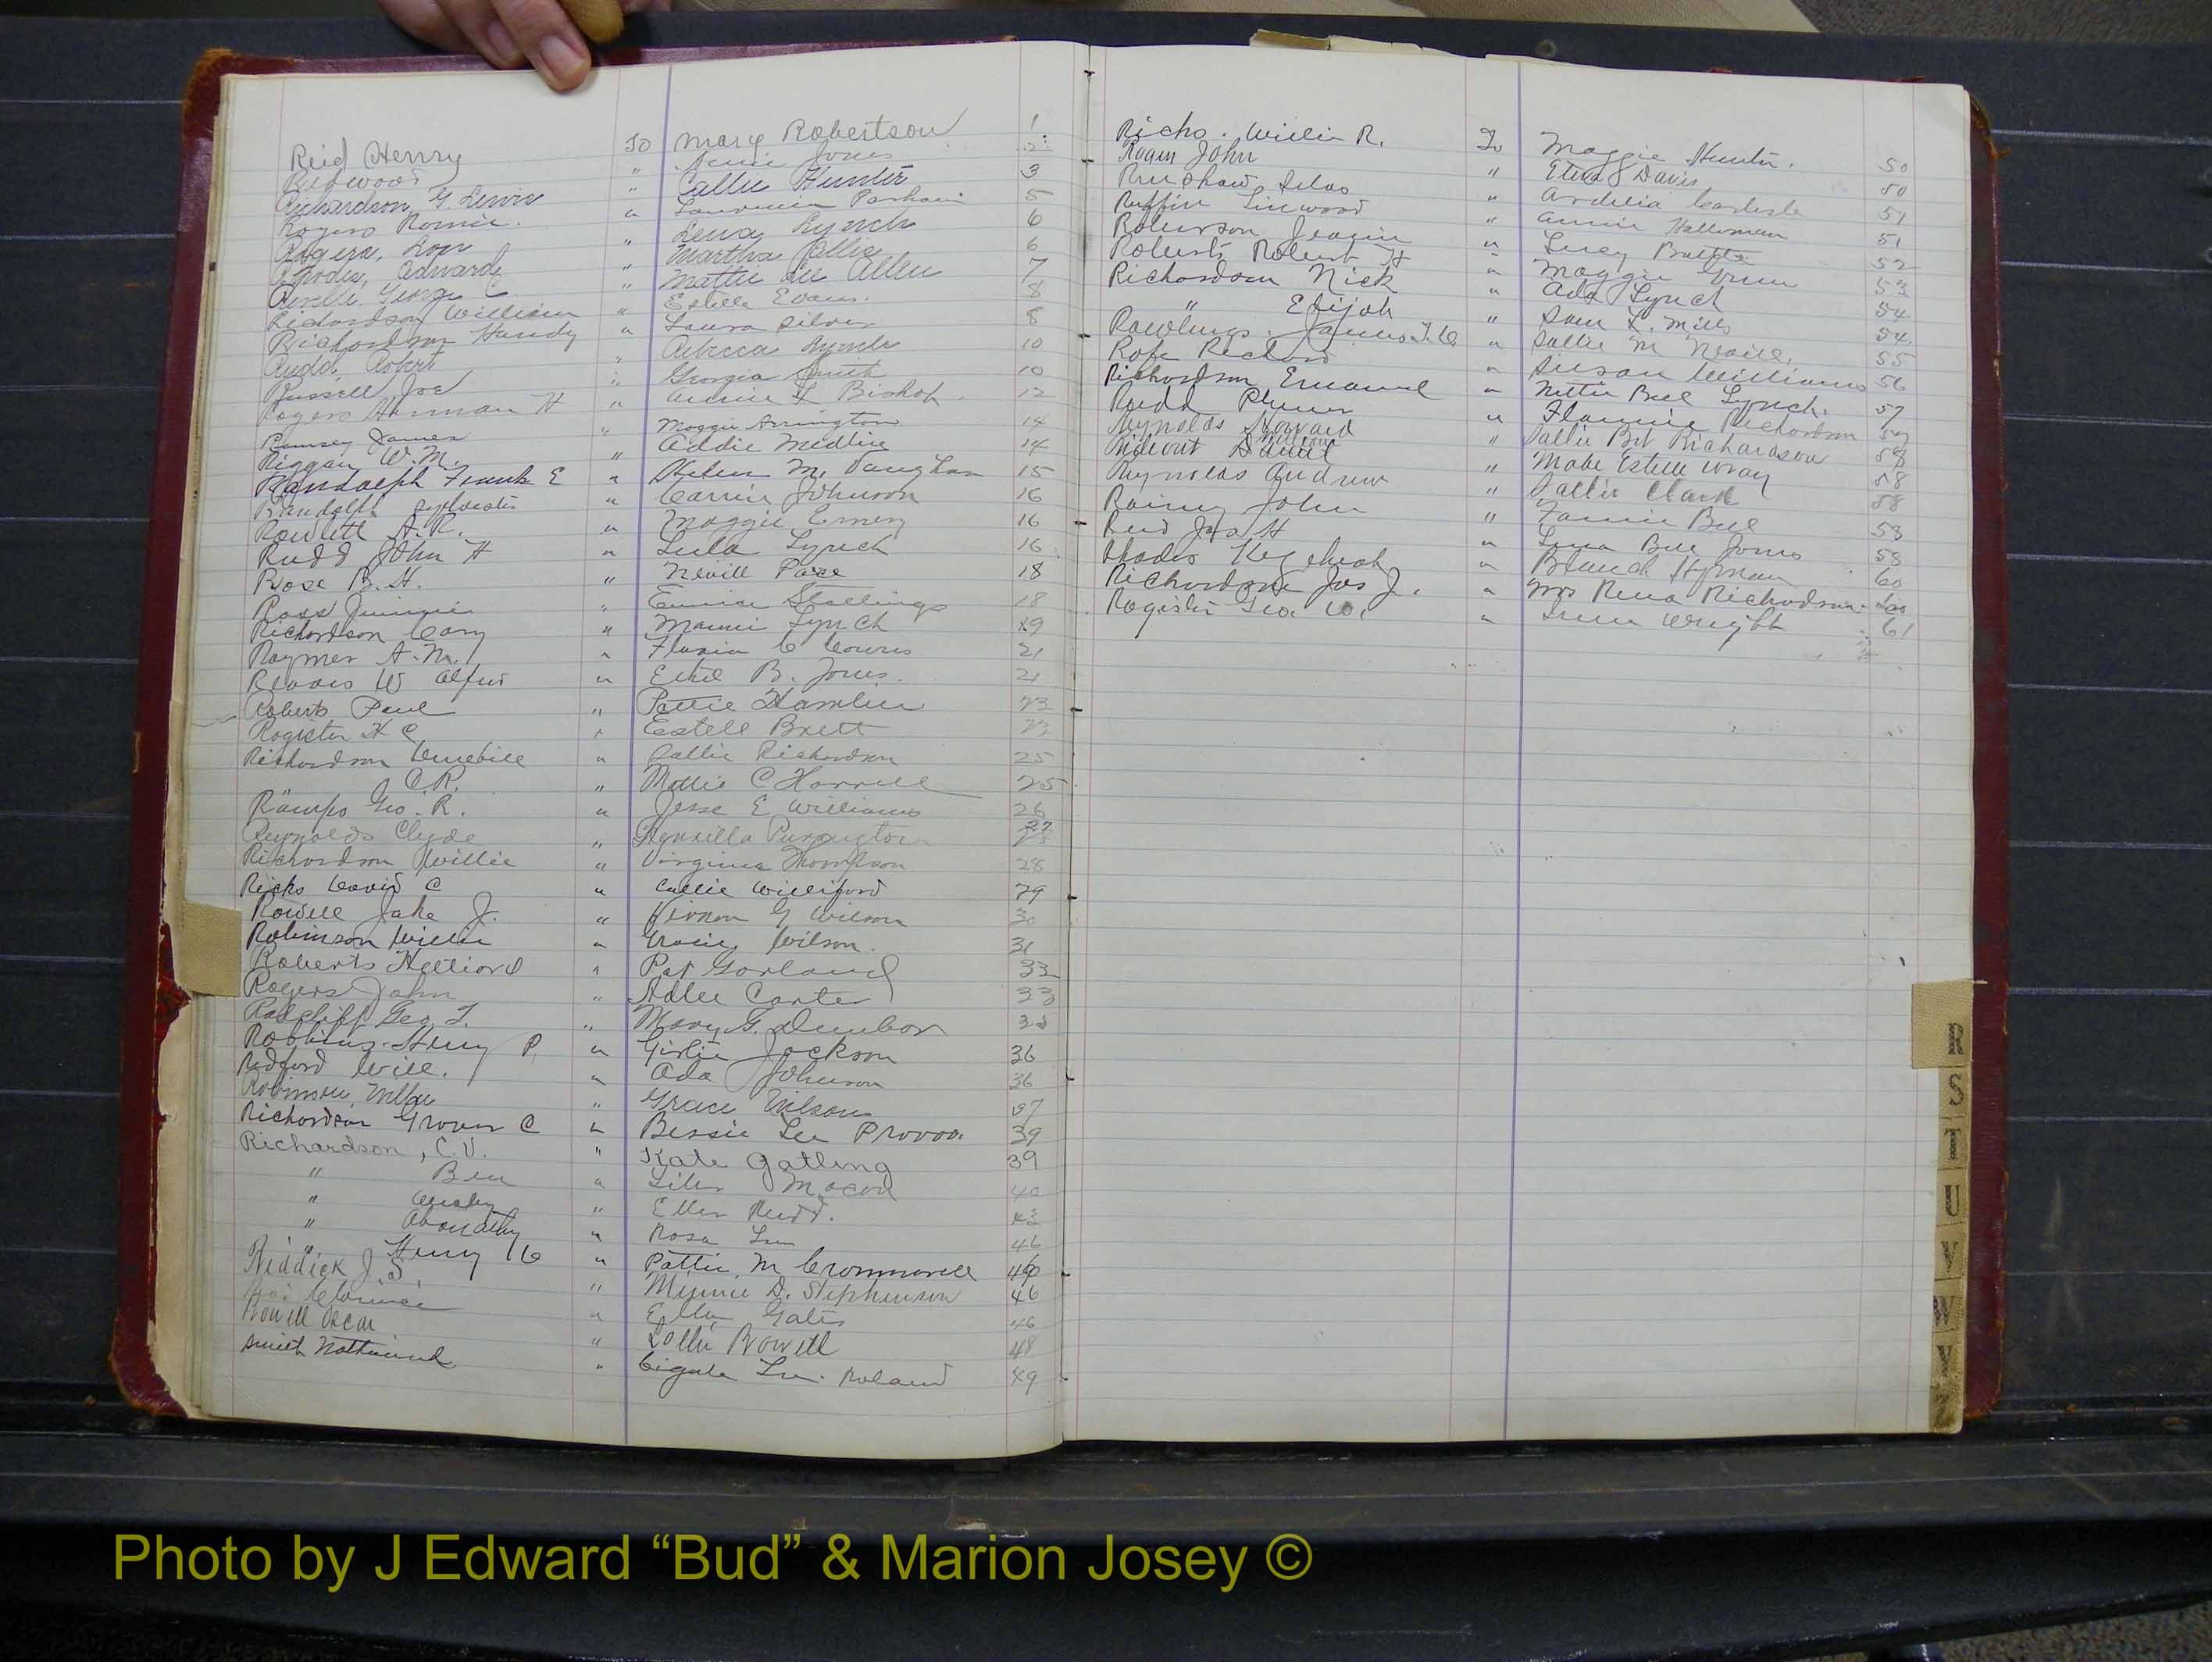 Reid Henry To Mary Robertson 1
Redwood " Annie Jones
Richardson, G. Lewis " Callie Hunter 3
Rogers Romie. " Parham 5
Rogers, Don " Lena Lynch 6
Rhodes, Edward " Martha 6
George " Mattie Lee Allen 7
Richardson William " Estelle Evans. 8
Richardson Handy " Laura Silver 8
Rudd Robert " Rebecca Lynch 10
Russell Joe " Georgia Smith 10
Rogers Herman H " Annie L Bishop. 12
Ramsey James " Maggie Arrington 14
Riggan W.M. " Addie Medlin 14
Randolph Frank E " Helen M. Vaughan 15
Randolph Sylvester " Carrie Johnson 16
Rowlett A.R. " Maggie Emery 16
Rudd John H " Lula Lynch 16
Rose B.H. " Nevill Pace 18
Ross Jimmie " Eunice Stallings 18
Richardson Cary " Mamie Lynch 19
Raymer A.M. " Flavia C 21
Reaves W " Ethel B. Jones. 21
Roberts Paul " Pattie Hamlin 23
Register H C " Estell Brett 23
Richardson " Sallie Richardson 25
C.R. " Mattie C Harrell 25
Geo. R. " Jesse E Williams 26
Reynolds Clyde " Purrington 27
Richardson Willie " Virginia Thompson 28
Ricks David C " Callie Williford 29
Rowell Jake J. " Vernon G Wilson 30
Robinson Willie " Gracie Wilson. 31
Roberts " Pat Garland 33
Rogers John " Adlee Carter 33
Radcliff Geo T. " Mary G. Dunbar 35
Robbins Henry P. " Girlie Jackson 36
Redford Will. " Ada Johnson 36
Robinson " Grace Wilson 37
Richardson Grover C " Bessie Lee 39
Richardson, C.V. " Kate Gatling 39
" Ben " Macon 40
" Wesley " Ellen Rudd. 43
" Abonathy " Rosa Lee 46
" Henry C " Pattie M Crommorell 46
Riddick J.S. " Minnie D. Stephenson 46
Clarence " Ella Gates 46
Rowell Oscar " Lollie Rowell 48
Smith " Lee Roland 49
Ricks. Willie R. To Maggie Hunter. 50
Rogers John " Davis 50
Renshaw Silas " Ardelia Carlisle 51
Ruffin Linwood " Annie Holloman 51
Roberson " Lucy 52
Roberts Robert H " Maggie Green 53
Richardson Nick " Ada Lynch 54
" Elijah " Sam L. Mills 54
Rawlings. James T.C. " Sallie M Neville. 55
Rope Richard " Susan Williams 56
Richardson Emanuel " Nettie Bell Lynch. 57
Rudd " Richardson 57
Reynolds Howard " Sallie Bet Richardson 58
Rideout William " Mabe Estelle Wray 58
Reynolds Andrew " Sallie Clark 58
Rainey John " Fannie Bell 53
Reid Jas H " Lena Bell Jones 58
Rhodes " Blanch Hyman 60
Richardson Jas J. " Mrs Rena Richardson 60
Register Geo. W. " Irene Wright 61
R
S
T
U
V
W
Y
Photo by J Edward “Bud” & Marion Josey ©